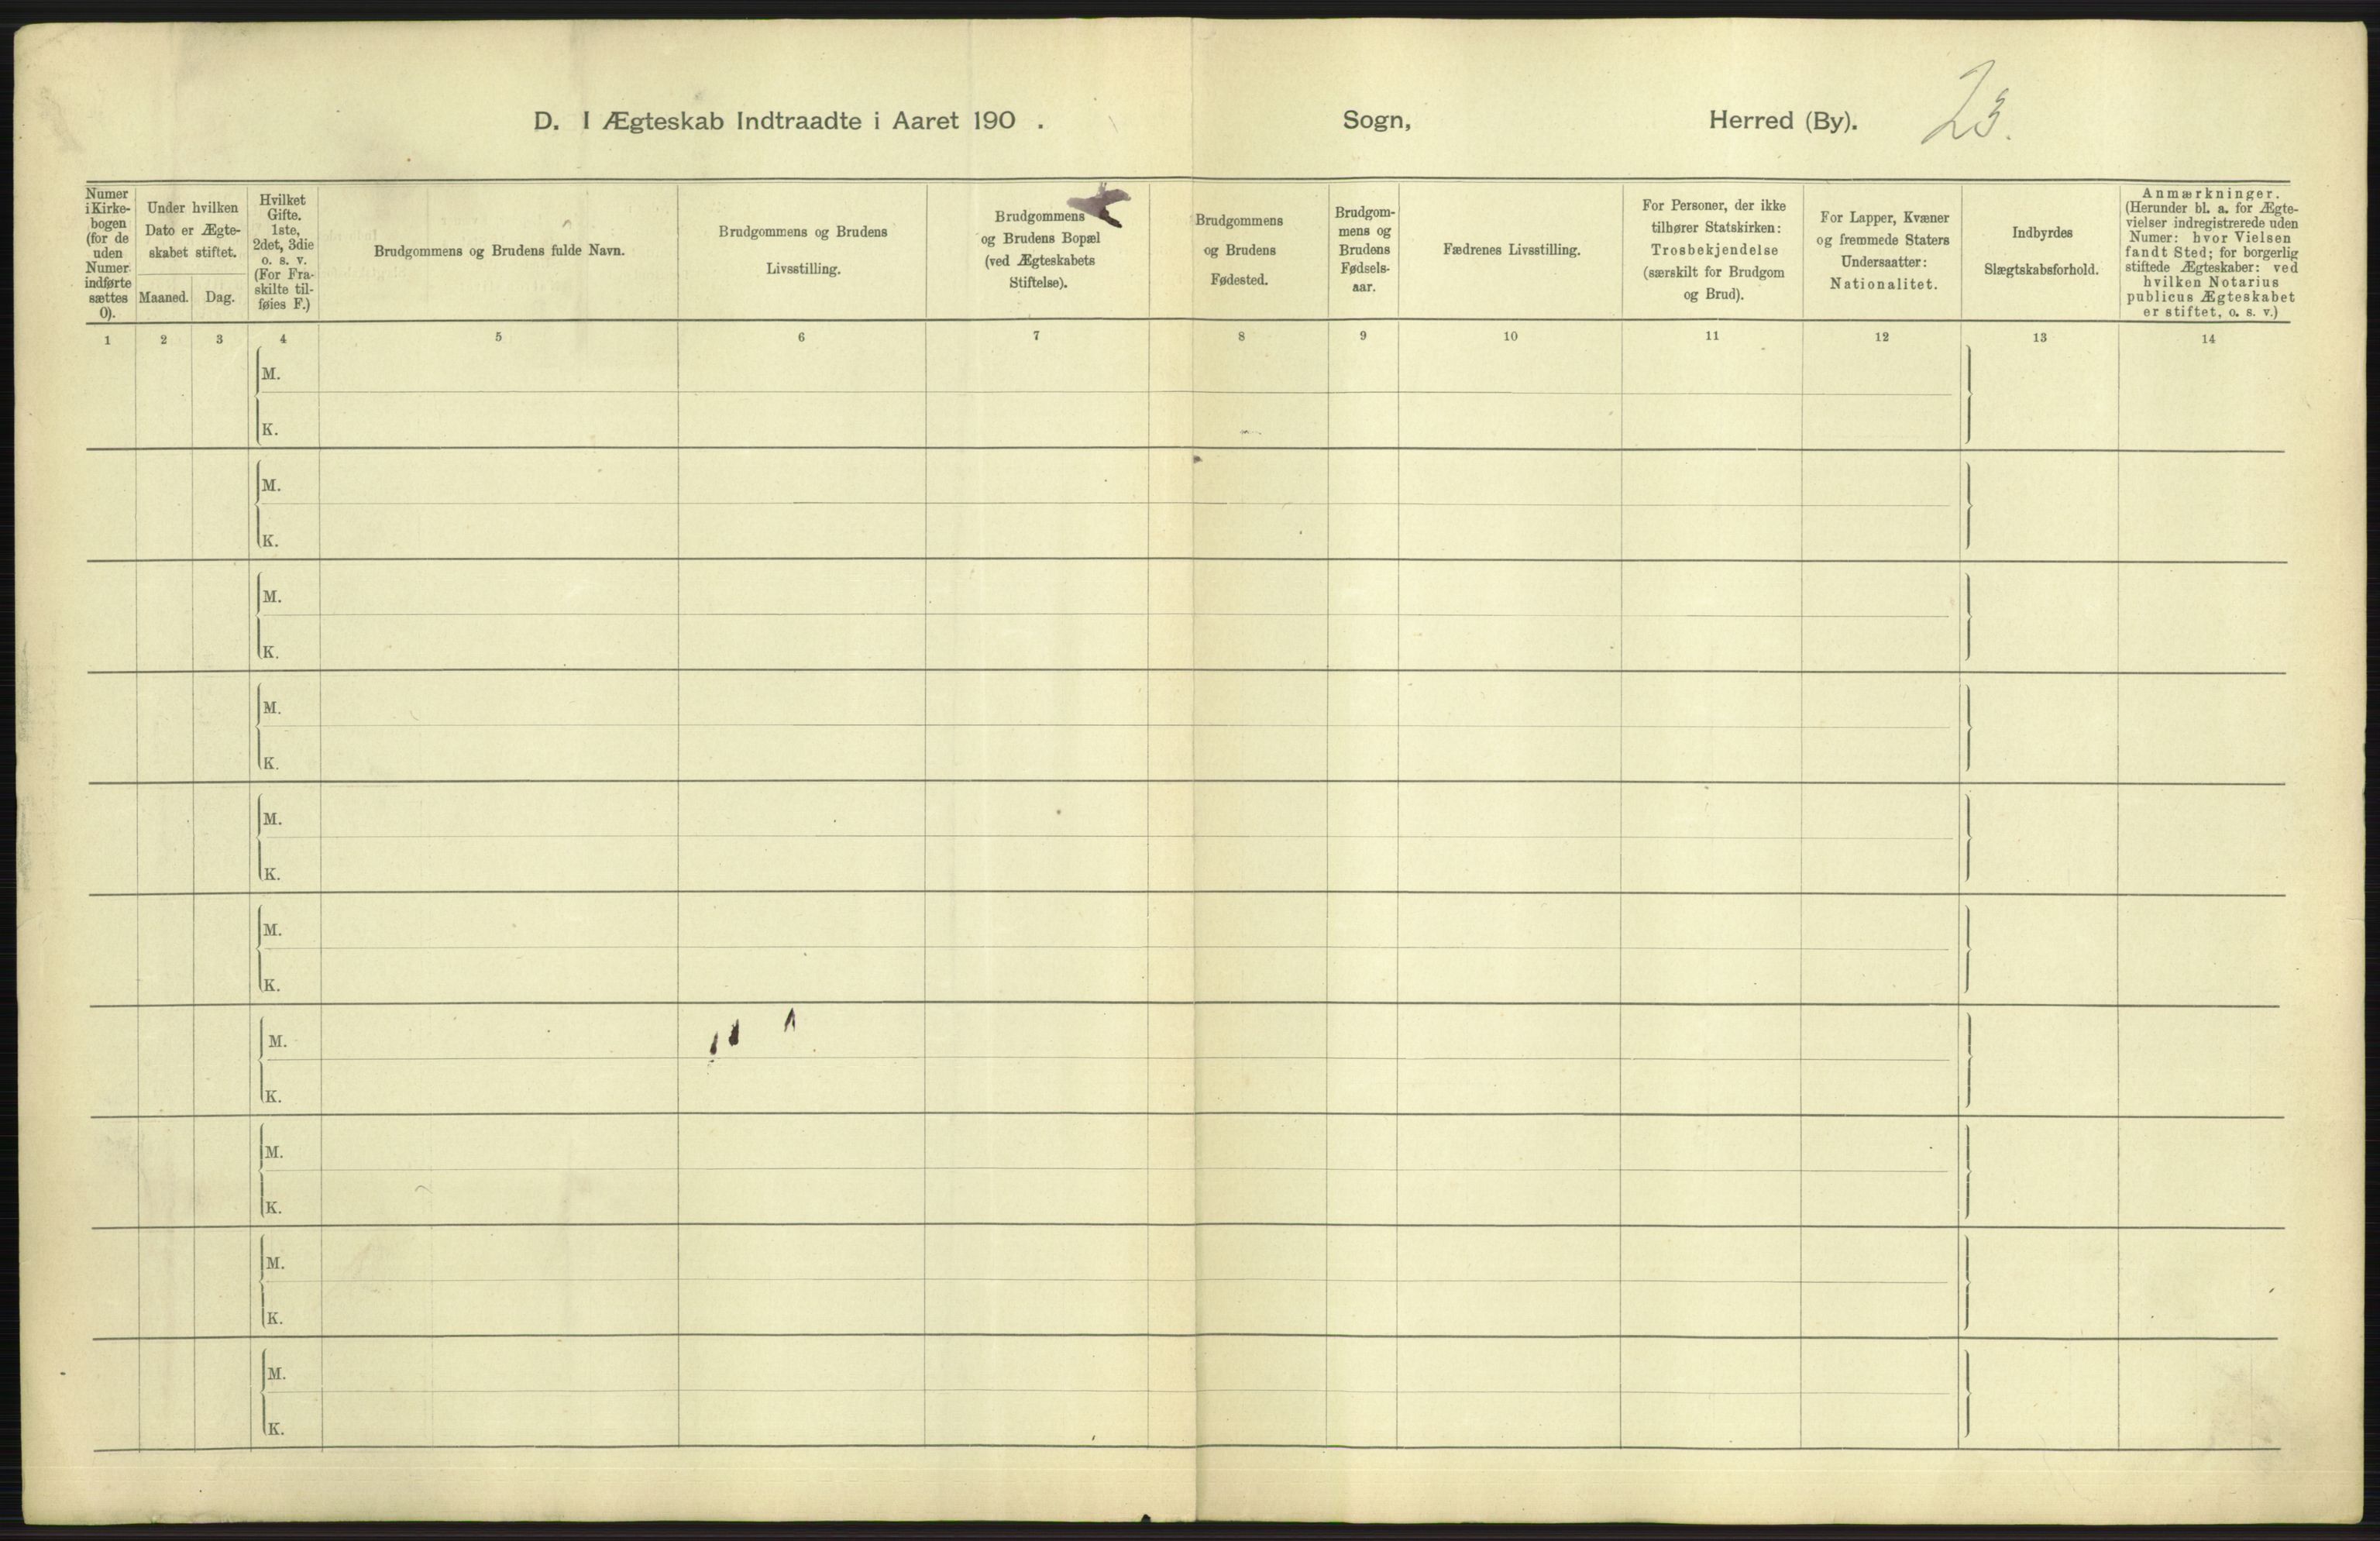 D. I Ægteskab Indtraadte i Aaret 190 . Sogn, Herred (By). 23.
Numer
i Kirke-
bogen
(for de
uden
Numer
indførte
sættes
0).
Under hvilken
Dato er Ægte-
skabet stiftet.
Maaned.
Dag.
Hvilket
Gifte.
1ste,
2det, 3die
o. s. v.
(For Fra-
skilte til-
føies F.)
Brudgommens og Brudens fulde Navn.
Brudgommens og Brudens
Livsstilling.
Brudgommens
og Brudens Bopæl
(ved Ægteskabets
Stiftelse).
Brudgommens
og Brudens
Fødested.
Brudgom-
mens og
Brudens
Fødsels-
aar.
Fædrenes Livsstilling.
For Personer, der ikke
tilhører Statskirken:
Trosbekjendelse
(særskilt for Brudgom
og Brud).
For Lapper, Kvæner
og fremmede Staters
Undersaatter:
Nationalitet.
Indbyrdes
Slægtskabsforhold.
Anmærkninger.
(Herunder bl. a. for Ægte-
vielser indregistrerede uden
Numer: hvor Vielsen
fandt Sted; for borgerlig
stiftede Ægteskaber: ved
hvilken Notarius
publicus Ægteskabet
er stiftet, o. s. v.)
1 2 3 4 5 6 7 8 9 10 11 12 13 14
M.
K.
M.
K.
M.
K.
M.
K.
M.
K.
M.
K.
M.
K.
M.
K.
M.
K.
M.
K.